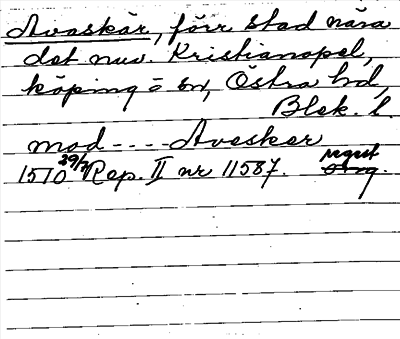 Avaskär, förr stad nära
det nuv. Kristianopel,
köping o sn, Östra hd,
Blek. l.
mod - - - - Avesker
1510 29/7 Rep. II nr 11587. regest